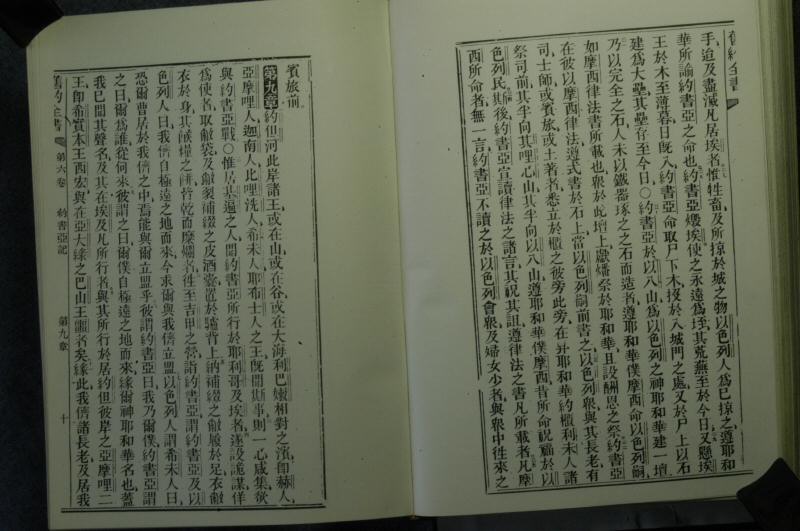 舊約全書
手迨及盡滅凡居埃者惟牲畜及所掠於城之物以色列人爲己掠之遵耶和
華所諭約書亞之命也約書亞燬埃使之永遠爲垤其荒蕪至於今日又懸埃
王於木至薄暮日旣入約書亞命取尸下木投於入城門之處又於尸上以石
建爲大壘其壘存至今日○約書亞於以八山爲以色列之神耶和華建一壇
乃以完全之石人未以鐵器琢之之石而造者遵耶和華僕摩西命以色列嗣
如摩西律法書所載也衆於此壇上獻燔祭於耶和華且設酬恩之祭約書亞
在彼以摩西律法遵式書於石上當以色列嗣前書之以色列衆與其長老有
司士師或賓旅或土著者悉立於櫃之彼旁此旁在舁耶和華約櫃利未人諸
祭司前其半向其哩心山其半向以八山遵耶和華僕摩西昔所命祝福於以
色列民斯後約書亞宣讀律法之諸言其祝其詛遵律法之書凡所載者凡摩
西所命者無一言約書亞不讀之於以色列會衆及婦女少者與衆中往來之
賓旅前
第九章約但河此岸諸王或在山或在谷或在大海利巴嫩相對之濱卽赫人
亞摩哩人迦南人比哩洗人希未人耶布士人之王旣聞斯事則一心咸集欲
與約書亞戰○惟居基遍之人聞約書亞所行於耶利哥及埃者遂設詭謀佯
爲使者取敝袋及敝裂補綴之皮酒囊置於驢背上納補綴之敝履於足衣敝
衣於身其餱糧之餅皆乾而糜爛者往至吉甲之營詣約書亞謂約書亞及以
色列人曰我儕自極遠之地而來今求爾與我儕立盟以色列人謂希未人曰
恐爾曹居於我儕之中焉能與爾立盟乎彼謂約書亞曰我乃爾僕約書亞謂
之曰爾爲誰從何來彼謂之曰爾僕自極遠之地而來緣爾神耶和華名也蓋
我已聞其聲名及其在埃及凡所行者與其所行於居約但彼岸之亞摩哩二
王卽希實本王西宏與在亞大綠之巴山王噩者矣緣此我儕諸長老及居我
舊約全書 第六卷 約書亞記 第九章 十